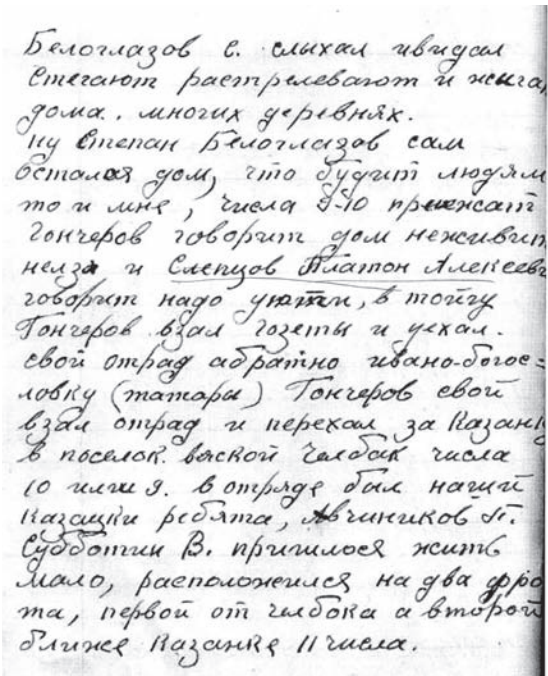 Белоглазов С. слыхал ивидал
Стегают растрелевают и жига
дома. многих деревнях.
ну Степан Белоглазов сам
осталая дом, что будит людям
то и мне, числа 9-10 приежат
Гончеров говорит дом неживит
нелзя и Слепцов Платон Алексеев
говорит надо уйти, в тойгу
Гончеров взал гозеты и уехал.
свой отрад абратно ивано-богос=
ловку (татары) Гончеров свой
взал отрад и перехал за Казанк
в поселок вяской Челбак числа
10 или 9. в отряде был наший
Казацки ребята, Авчиников П.
Субботин В. пришлося жить
мало, расположился на два фро
та, первой от челбока а второй
ближе Казанке 11 числа.